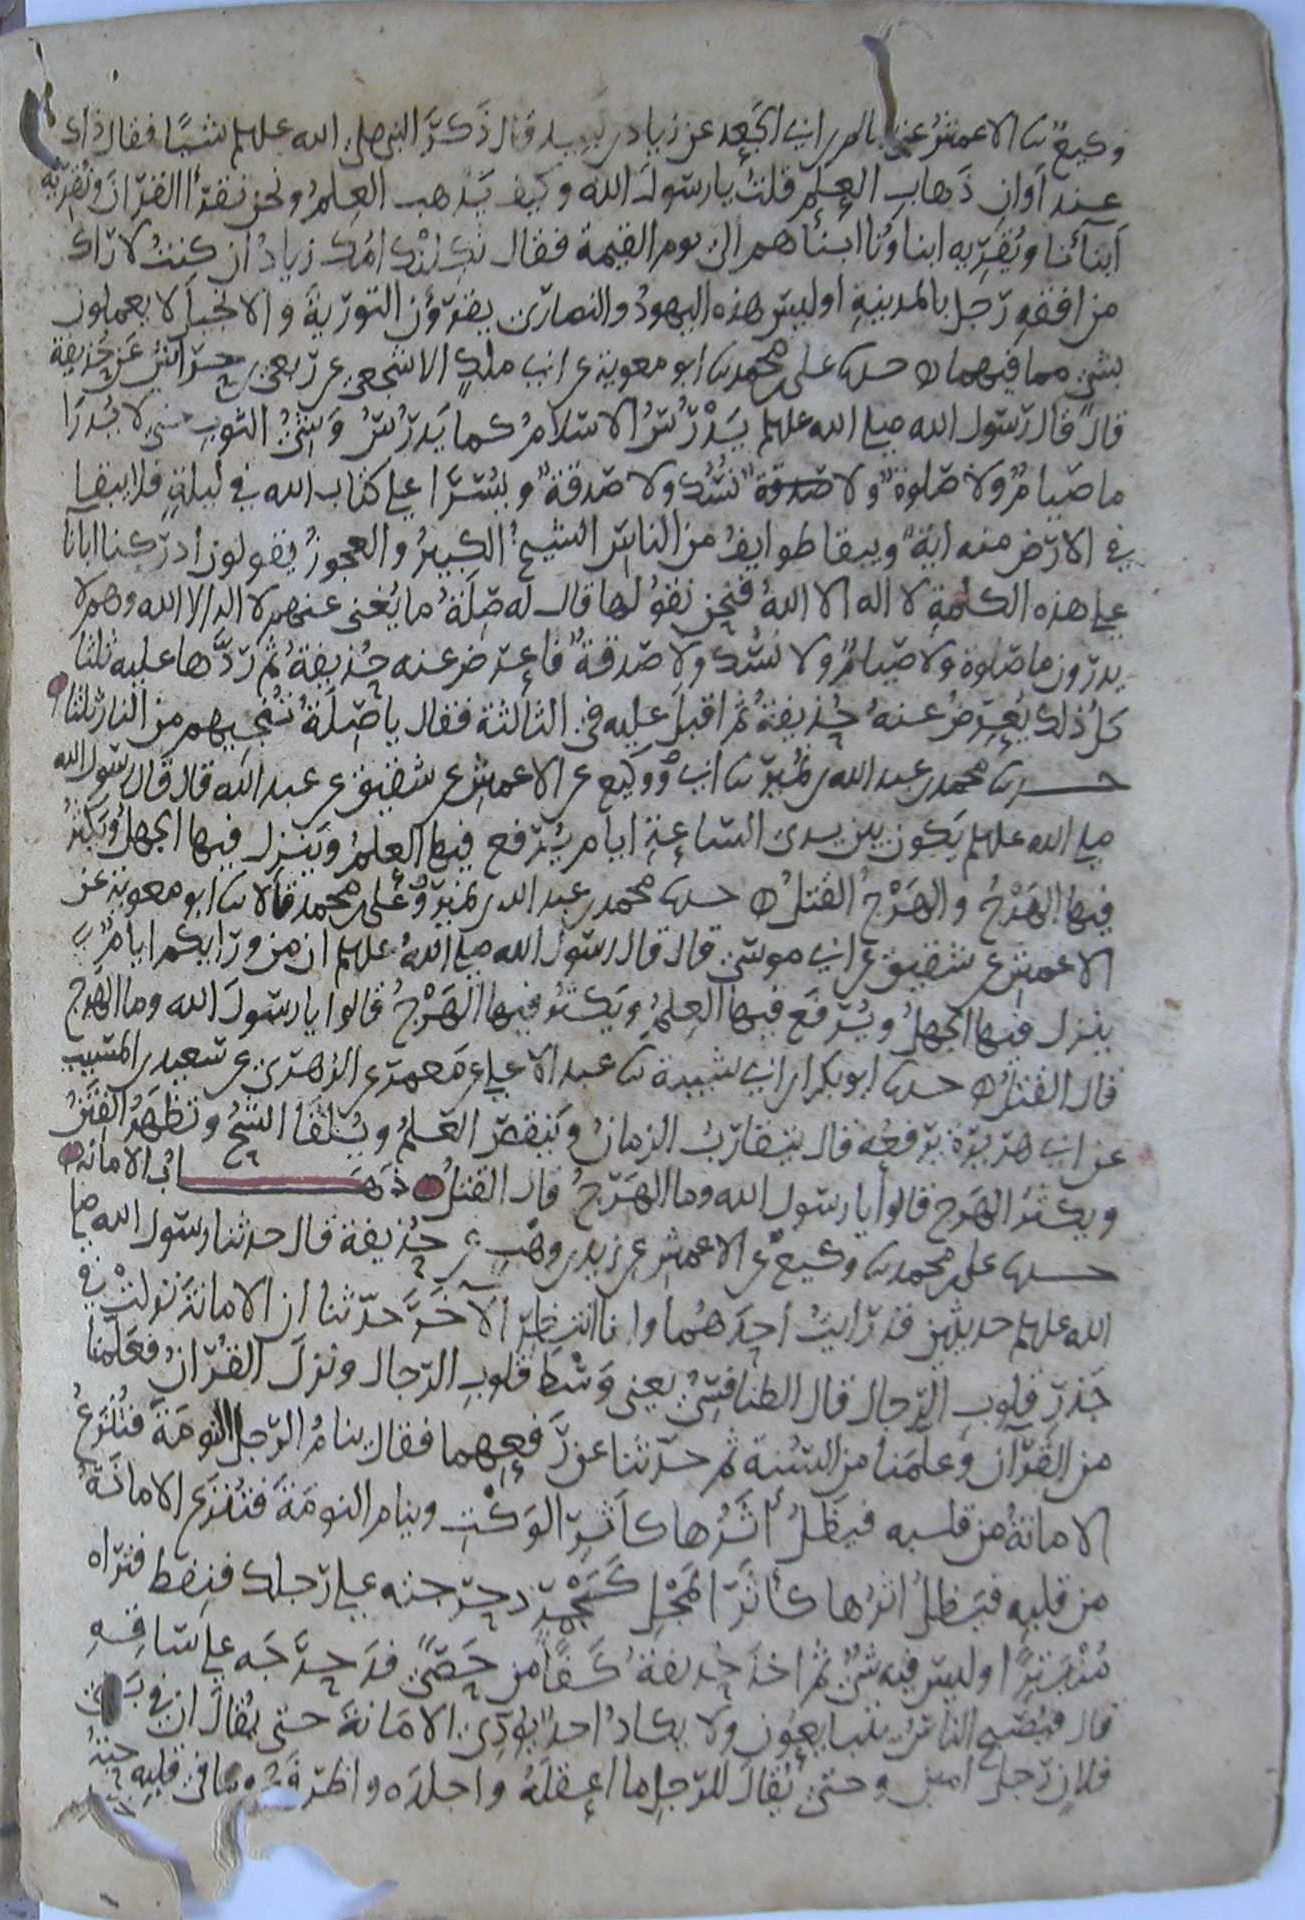 وكيعٌ ثنا الاعمشُ عن سالم بن ابي الجَعد عن زياد بن لبيد قال ذَكَرَ النبي صلى الله عليه وسلم شيئًا فقال ذاك
عند اَوانِ ذَهابِ العِلمِ قلتُ يا رسولَ الله وكيف يَذهب العِلمُ ونحن نقرَأ القرانَ ونُقرِيه
اَبنأنا ويُقرِيه ابناؤنا ابنأهم الى يوم القيمة فقال ثكلتك امُك زيادُ ان كنتُ لاراك
من افقهِ رَجل بالمدينةِ اوليس هذه اليهودُ والنصارى يقرؤن التورية والانجيلَ لا يعملون
بشي مما فيهما حدثنا على بن محمد ثنا ابو معوية عن ابي ملك الاشجعي عن ربعي بن حراشٍ عن حُذيفة
قالَ قال رسول الله صلى الله عليه وسلم يَدْرُسُ الاسلامُ كما يَدرُسُ وَشيُ الثوبِ حتى لا يُدرَا
ما صيامٌ ولا صلوة ولا صدقة نُسُك ولا صدقة ويُسرَا على كتاب الله في ليلةٍ فلا يبقا
في الارض منه ايةٌ ويبقا طوايفُ من الناس الشيخُ الكبيرُ والعجوزُ يقولون ادركنا ابانا
على هذه الكلمةِ لا اله الا اللهُ فنحن نقولها قال له صِلَةُ ما يُغنى عنهم لا اله الا الله وهم لا
يدرون ما صلوة ولا صيامٌ ولا نسك ولا صدقةٌ فاعرض عنه حُذيفةُ ثم رَدَّها عليه ثلثا
كلُ ذلك يُعرِضُ عنهُ حُذيفةُ ثم اقبلَ عليه في الثالثة فقال يا صِلَةُ تُنجيهم من النار ثلثا
حدثنا محمد بن عبد الله بن نُمَير ثنا ابي ووكيع عن الاعمش عن شقيق عن عبد الله قال قال رسول الله
صلى الله عليه وسلم يَكون بين يدى الساعةِ ايام يُرفع فيها العلمُ ويَنزل فيها الجهلُ ويَكثرُ
فيها الهَرْجُ والهَرْجُ القتلُ حدثنا محمد بن عبد الله بن نمير وعلى بن محمد قالا ثنا ابو معوية عن
الاعمش عن شقيق عن ابي موسى قال قال رسول الله صلى اللهُ عليه وسلم ان من ورايكم اياما
ينزل فيها الجهلُ ويُرفَع فيها العِلمُ ويَكثرُ فيها الهَرْجُ قالوا يا رسولَ الله وما الهرج
قال القتلُ حدثنا ابو بكر ابن ابي شيبة ثنا عبد الاعلى عن مَعمر عن الزهرى عن سعيد بن المسيب
عن ابي هريرة يرفعُه قال يتقاربُ الزمانُ وَينقصُ العلمُ ويُلقا الشحُ وتَظهَرُ الفتنُ
ويكثرُ الهَرج قالوا يا رسول الله وما الهَرجُ قال القتلُ ذهَــابُ الامانه
حدثنا على بن محمد ثنا وكيعٌ عن الاعمش عن زيد بن وهبٍ عن حُذيفة قال حدثنا رسول الله صلى
الله عليه وسلم حديثين قد رايتُ اَحِدَهُما وانا انتظر الآخَرَ حَدّثنا ان الامانةَ نزلتْ في
جَذرِ قلوبِ الرجال قال الطنافسيُ يعني وَسْطَ قلوبِ الرجال ونزلَ القرانُ فعَلِمنا
من القران وعلمنا من السُنة ثم حدثنا عن رَفعِهما فقال ينامُ الرجلُ النومَةَ فتُنزعُ
الامانةُ من قلبه فيَظلُ اَثَرُها كاَثَرِ الوَكْتِ وينام النومَةَ فتُنزع الامانَةُ
من قلبِه فيَظلُ اثرها كاثَرِ المَجْلِ كَجَمْرٍ دحرجته على رجلك فنِفط فتراه
مُنْتَبِرًا وليس فيه شيٌ ثم اخذ حُذيفةُ كَفًا من حَصًى فدَحرجَه على ساقِهِ
قال فيُصبح الناسُ يتبايعون ولا يكادُ احدٌ يؤدى الامَانةَ حتى يُقالَ ان في بَنى
فلانٍ رَجلاً امين وحتى يُقالَ للرَجلِ ما اعقلَهُ واجلدَه واظرفَهُ وما في قلبِه حبةُ